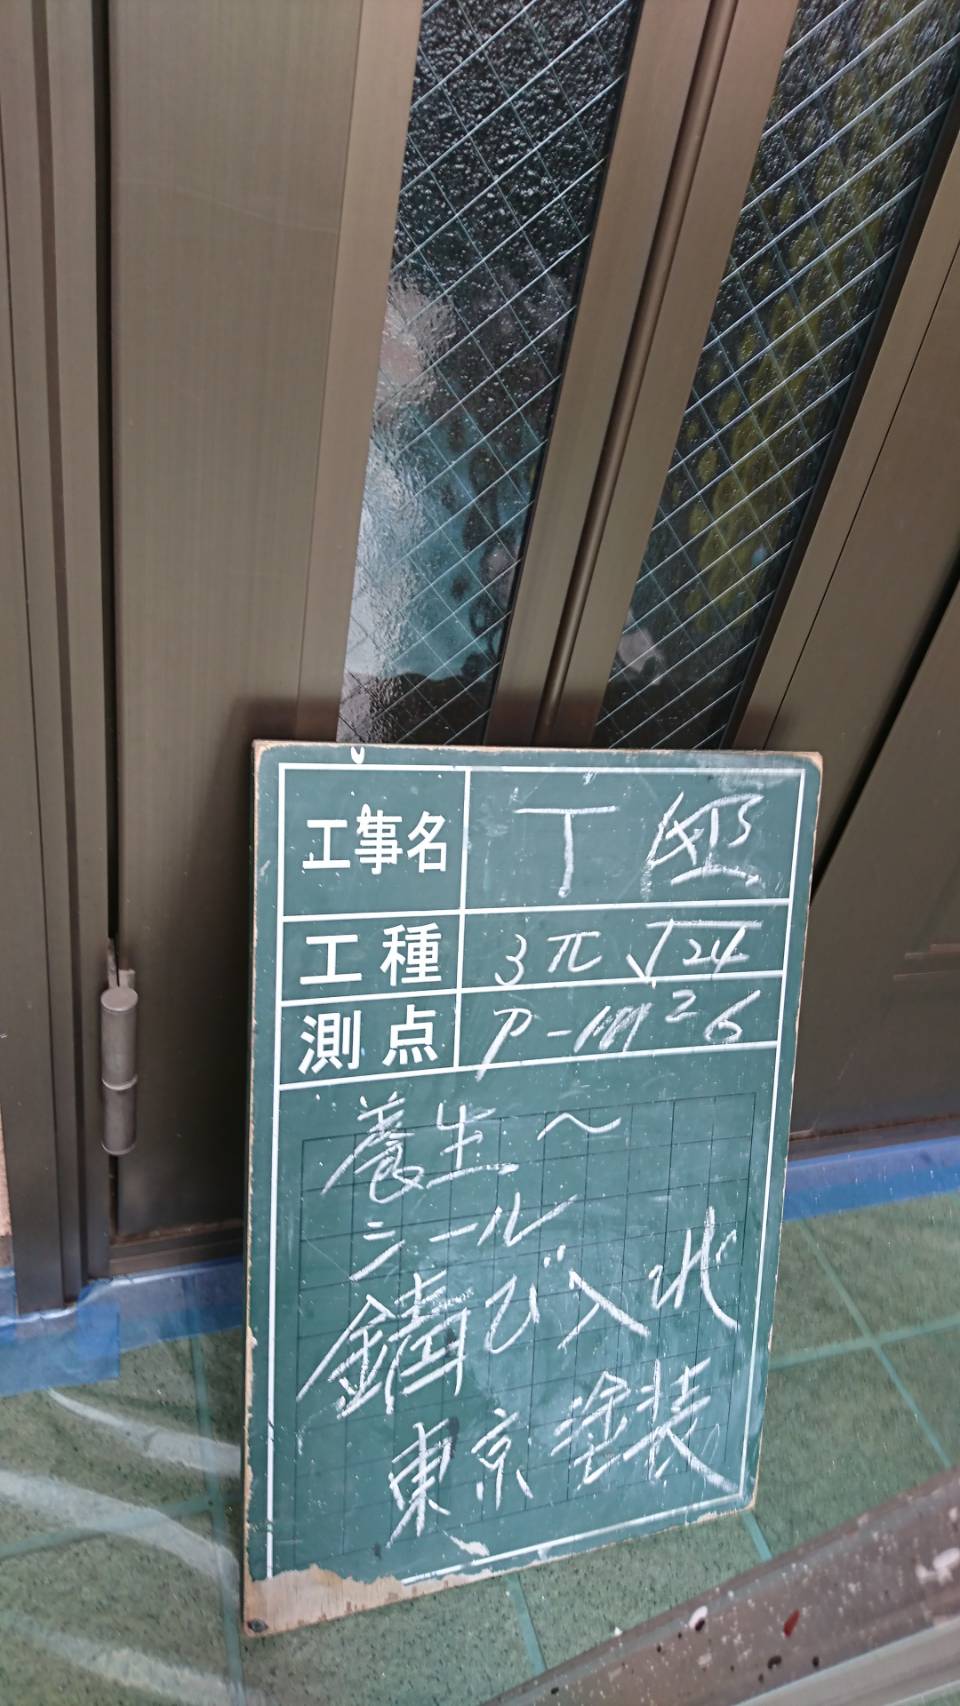 工事名 丁邸
工種 3π √24
測点 P-1m²6
養生～
シール
錆び入れ
東京塗装